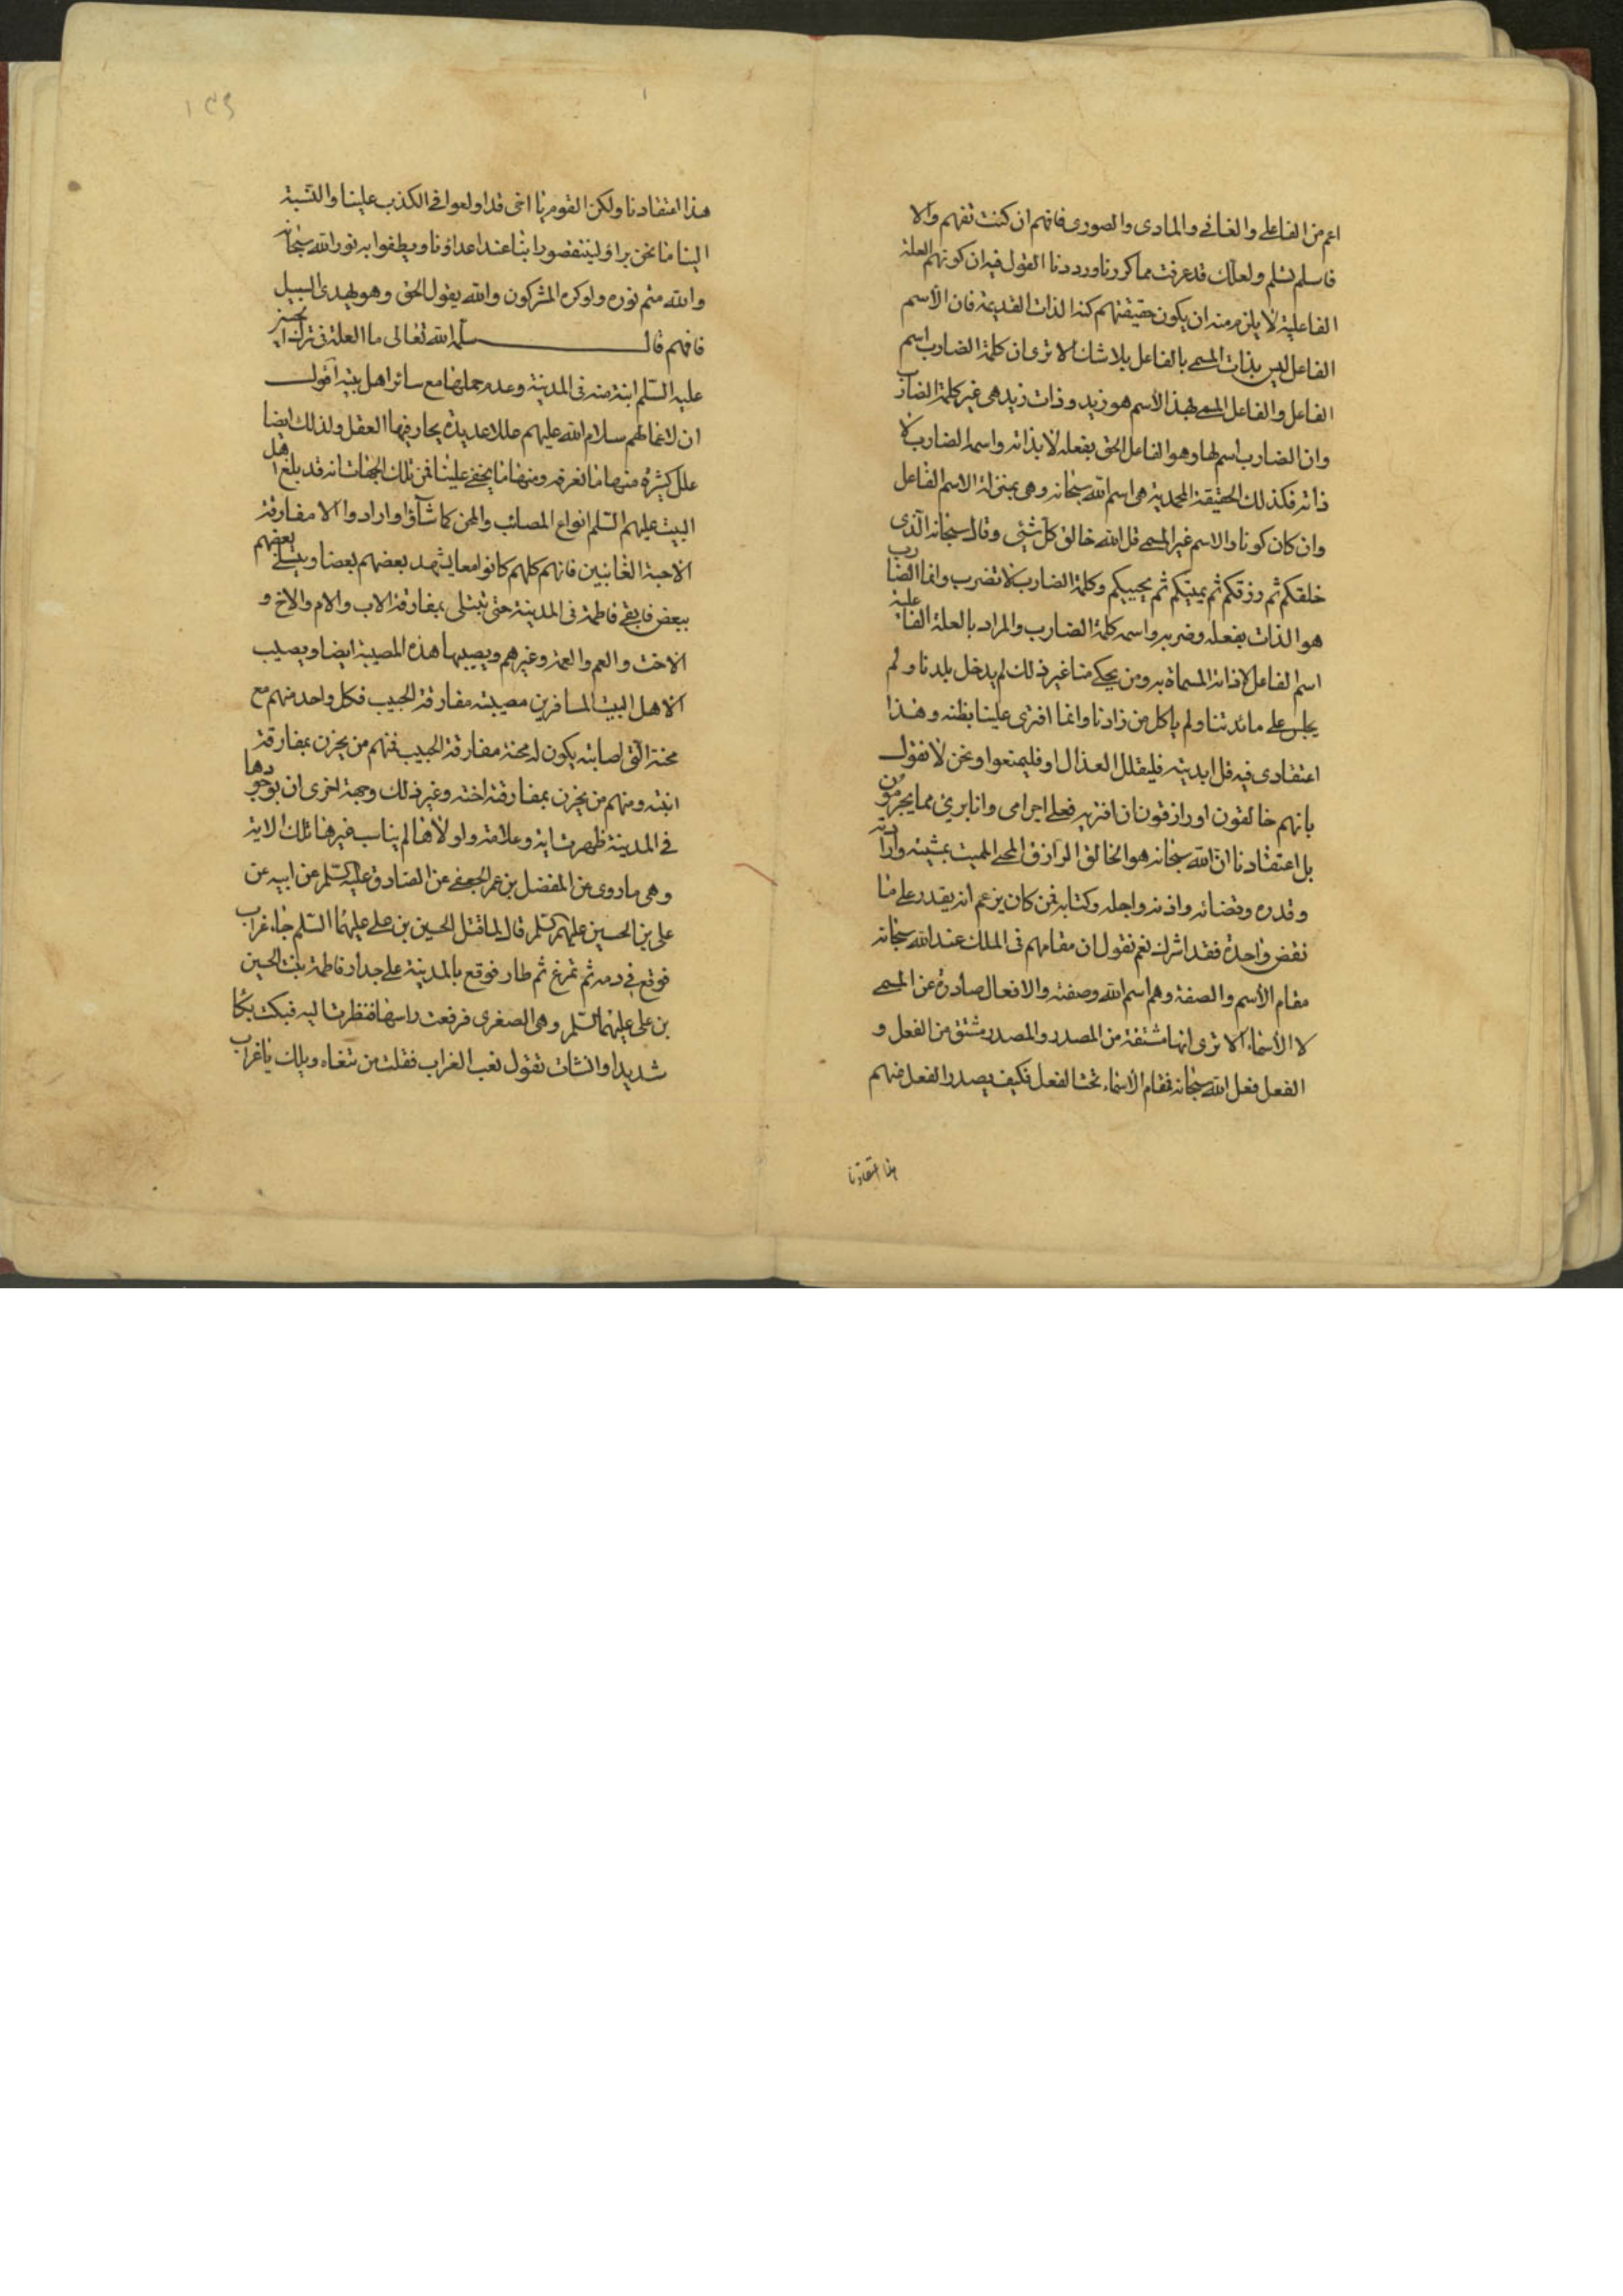 اعم من الفاعلي والغائي والمادي والصوري فافهم ان كنت تفهم والا
فاسلم تسلم ولعلك قد عرفت مما كررنا ورددنا القول فيه ان كونهم العلة
الفاعلية لا يلزم منه ان يكون حقيقتهم كنه الذات القديمة فان الاسم
الفاعل ليس بذات المسمى بالفاعل بلا شك الا ترى ان كلمة الضارب اسم
الفاعل والفاعل المسمى بهذا الاسم هو زيد وذات زيد هي غير كلمة الضارب
وان الضارب اسم لها وهو الفاعل الحق بفعله لا بذاته واسمه الضارب لا
ذاته فكذلك الحقيقة المحمدية هي اسم الله سبحانه وهي بمنزلة الاسم الفاعل
وان كان كونا والاسم غير المسمى قل الله خالق كل شئ وقال سبحانه الذي
خلقكم ثم رزقكم ثم يميتكم ثم يحييكم وكلمة الضارب لا تضرب وانما الضارب
هو الذات بفعله وضربه واسمه كلمة الضارب والمراد بالعلة الفاعلية
اسم الفاعل لا ذاته المسماة به ومن يحكي منا غير ذلك لم يدخل بلدنا ولم
يجلس على مائدتنا ولم ياكل من زادنا وانما افترى علينا بظنه وهذا
اعتقادي فيه قل ابديته فليقلل العذال او فليمنعوا ونحن لا نقول
بانهم خالقون او رازقون ان افتريته فعلي اجرامي وانا بريئ مما يجرمون
بل اعتقادنا ان الله سبحانه هو الخالق الرازق المحيي المميت بمشيته وارادته
وقدره وقضائه واذنه واجله وكتابه فمن كان يزعم انه يقدر على ما
نقض واحدة فقد اشرك نعم نقول ان مقامهم في الملك عند الله سبحانه
مقام الاسم والصفة وهم اسم الله وصفته والافعال صادرة عن المسمى
لا الاسماء الا ترى انها مشتقة من المصدر والمصدر مشتق من الفعل و
الفعل فعل الله سبحانه فمقام الاسماء تحت الفعل فكيف يصدر الفعل منهم
هذا اعتقادنا
١٣٩
هذا اعتقادنا ولكن القوم يا اخي قد اولعوا في الكذب علينا والنسبة
الينا ما نحن براؤ لينتقصوا بنا عند اعداؤنا ويطفوا به نور الله سبحانه
والله متم نوره ولو كره المشركون والله يقول الحق وهو يهدي السبيل
فافهم قال سلمه الله تعالى ما العلة في ترك الحسين
عليه السلم ابنة منه في المدينة وعدم حملها مع سائر اهل بيته اقول
ان لافعالهم سلام الله عليهم عللا عديدة يحار فيها العقل ولذلك ايضا
علل كثيرة منها ما نعرفه ومنها ما يخفى علينا فمن تلك الجهات انه قد بلغ اهل
البيت عليهم السلم انواع المصائب والمحن كما شاؤا وارادوا الا مفارقة
الاحبة الغائبين فانهم كلهم كانوا معا يشهد بعضهم بعضا ويتسلى بعضهم
ببعض فابقي فاطمة في المدينة حتى تبتلى بمفارقة الاب والام والاخ و
الاخت والعم والعمة وغيرهم ويصيبها هذه المصيبة ايضا ويصيب
الاهل البيت المسافرين مصيبة مفارقة الحبيب فكل واحد منهم مع
محنة التي اصابته يكون له محنة مفارقة الحبيب فمنهم من يحزن بمفارقة
ابنته ومنهم من يحزن بمفارقة اخته وغير ذلك وجهة اخرى ان بوجودها
في المدينة ظهرت اية وعلامة ولولاها لم يناسب غيرها تلك الاية
وهي ما روي عن المفضل بن عمر الجعفي عن الصادق عليه السلم عن ابيه عن
علي بن الحسين عليهم السلم قال لما قتل الحسين بن علي عليهما السلم جاء غراب
فوقع في دمه ثم تمرغ ثم طار فوقع بالمدينة على جدار فاطمة بنت الحسين
بن علي عليهما السلم وهي الصغرى فرفعت راسها فنظرت اليه فبكت بكاء
شديدا وانشات تقول نعب الغراب فقلت من تنعاه ويلك يا غراب